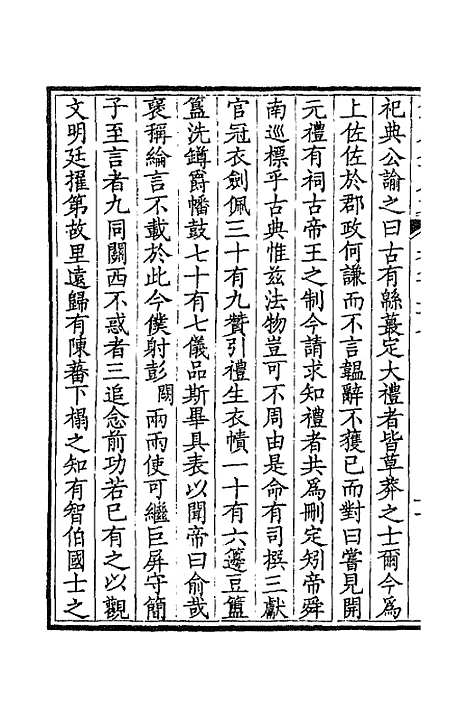 祀典公諭之曰古有緜蕞定大禮者皆草莽之士爾今為
上佐佐於郡政何謙而不言韞辭不獲已而對曰嘗見開
元禮有祠古帝王之制今請求知禮者共為刪定矧帝舜
南巡標乎古典惟兹法物豈可不周由是命有司撰三獻
官冠衣劍佩三十有九贊引禮生衣幘一十有六籩豆簠
簋洗罇爵幡鼓七十有七儀品斯畢具表以聞帝曰俞哉
褒稱綸言不載於此今僕射彭闕兩兩使可繼巨屏守簡
子至言者九同關西不惑者三追念前功若已有之以觀
文明廷擢第故里遠歸有陳蕃下榻之知有智伯國士之